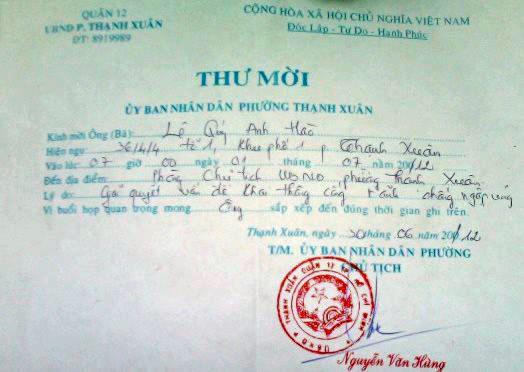 QUẬN 12
UBND P. THẠNH XUÂN
ĐT: 8919989
CỘNG HÒA XÃ HỘI CHỦ NGHĨA VIỆT NAM
Độc Lập - Tự Do - Hạnh Phúc
THƯ MỜI
ỦY BAN NHÂN DÂN PHƯỜNG THẠNH XUÂN
Kính mời Ông (Bà): Lê Quý Anh Hào
Hiện ngụ: 36/4/4 tổ 1, Khu phố 1 p Thạnh Xuân
Vào lúc 07 giờ 00 ngày 01 tháng 07, năm 20012
Đến địa điểm: Phòng Chủ tịch UBND phường Thạnh Xuân
Lý do: Giải quyết vấn đề khai thông cống rãnh chống ngập úng
Vì buổi họp quan trọng mong Ông sắp xếp đến đúng thời gian ghi trên.
Thạnh Xuân, ngày 30 tháng 06 năm 20012
T/M. ỦY BAN NHÂN DÂN PHƯỜNG
CHỦ TỊCH
U.B.N.D P. THẠNH XUÂN QUẬN 12 T.P HỒ CHÍ MINH
Nguyễn Văn Hùng